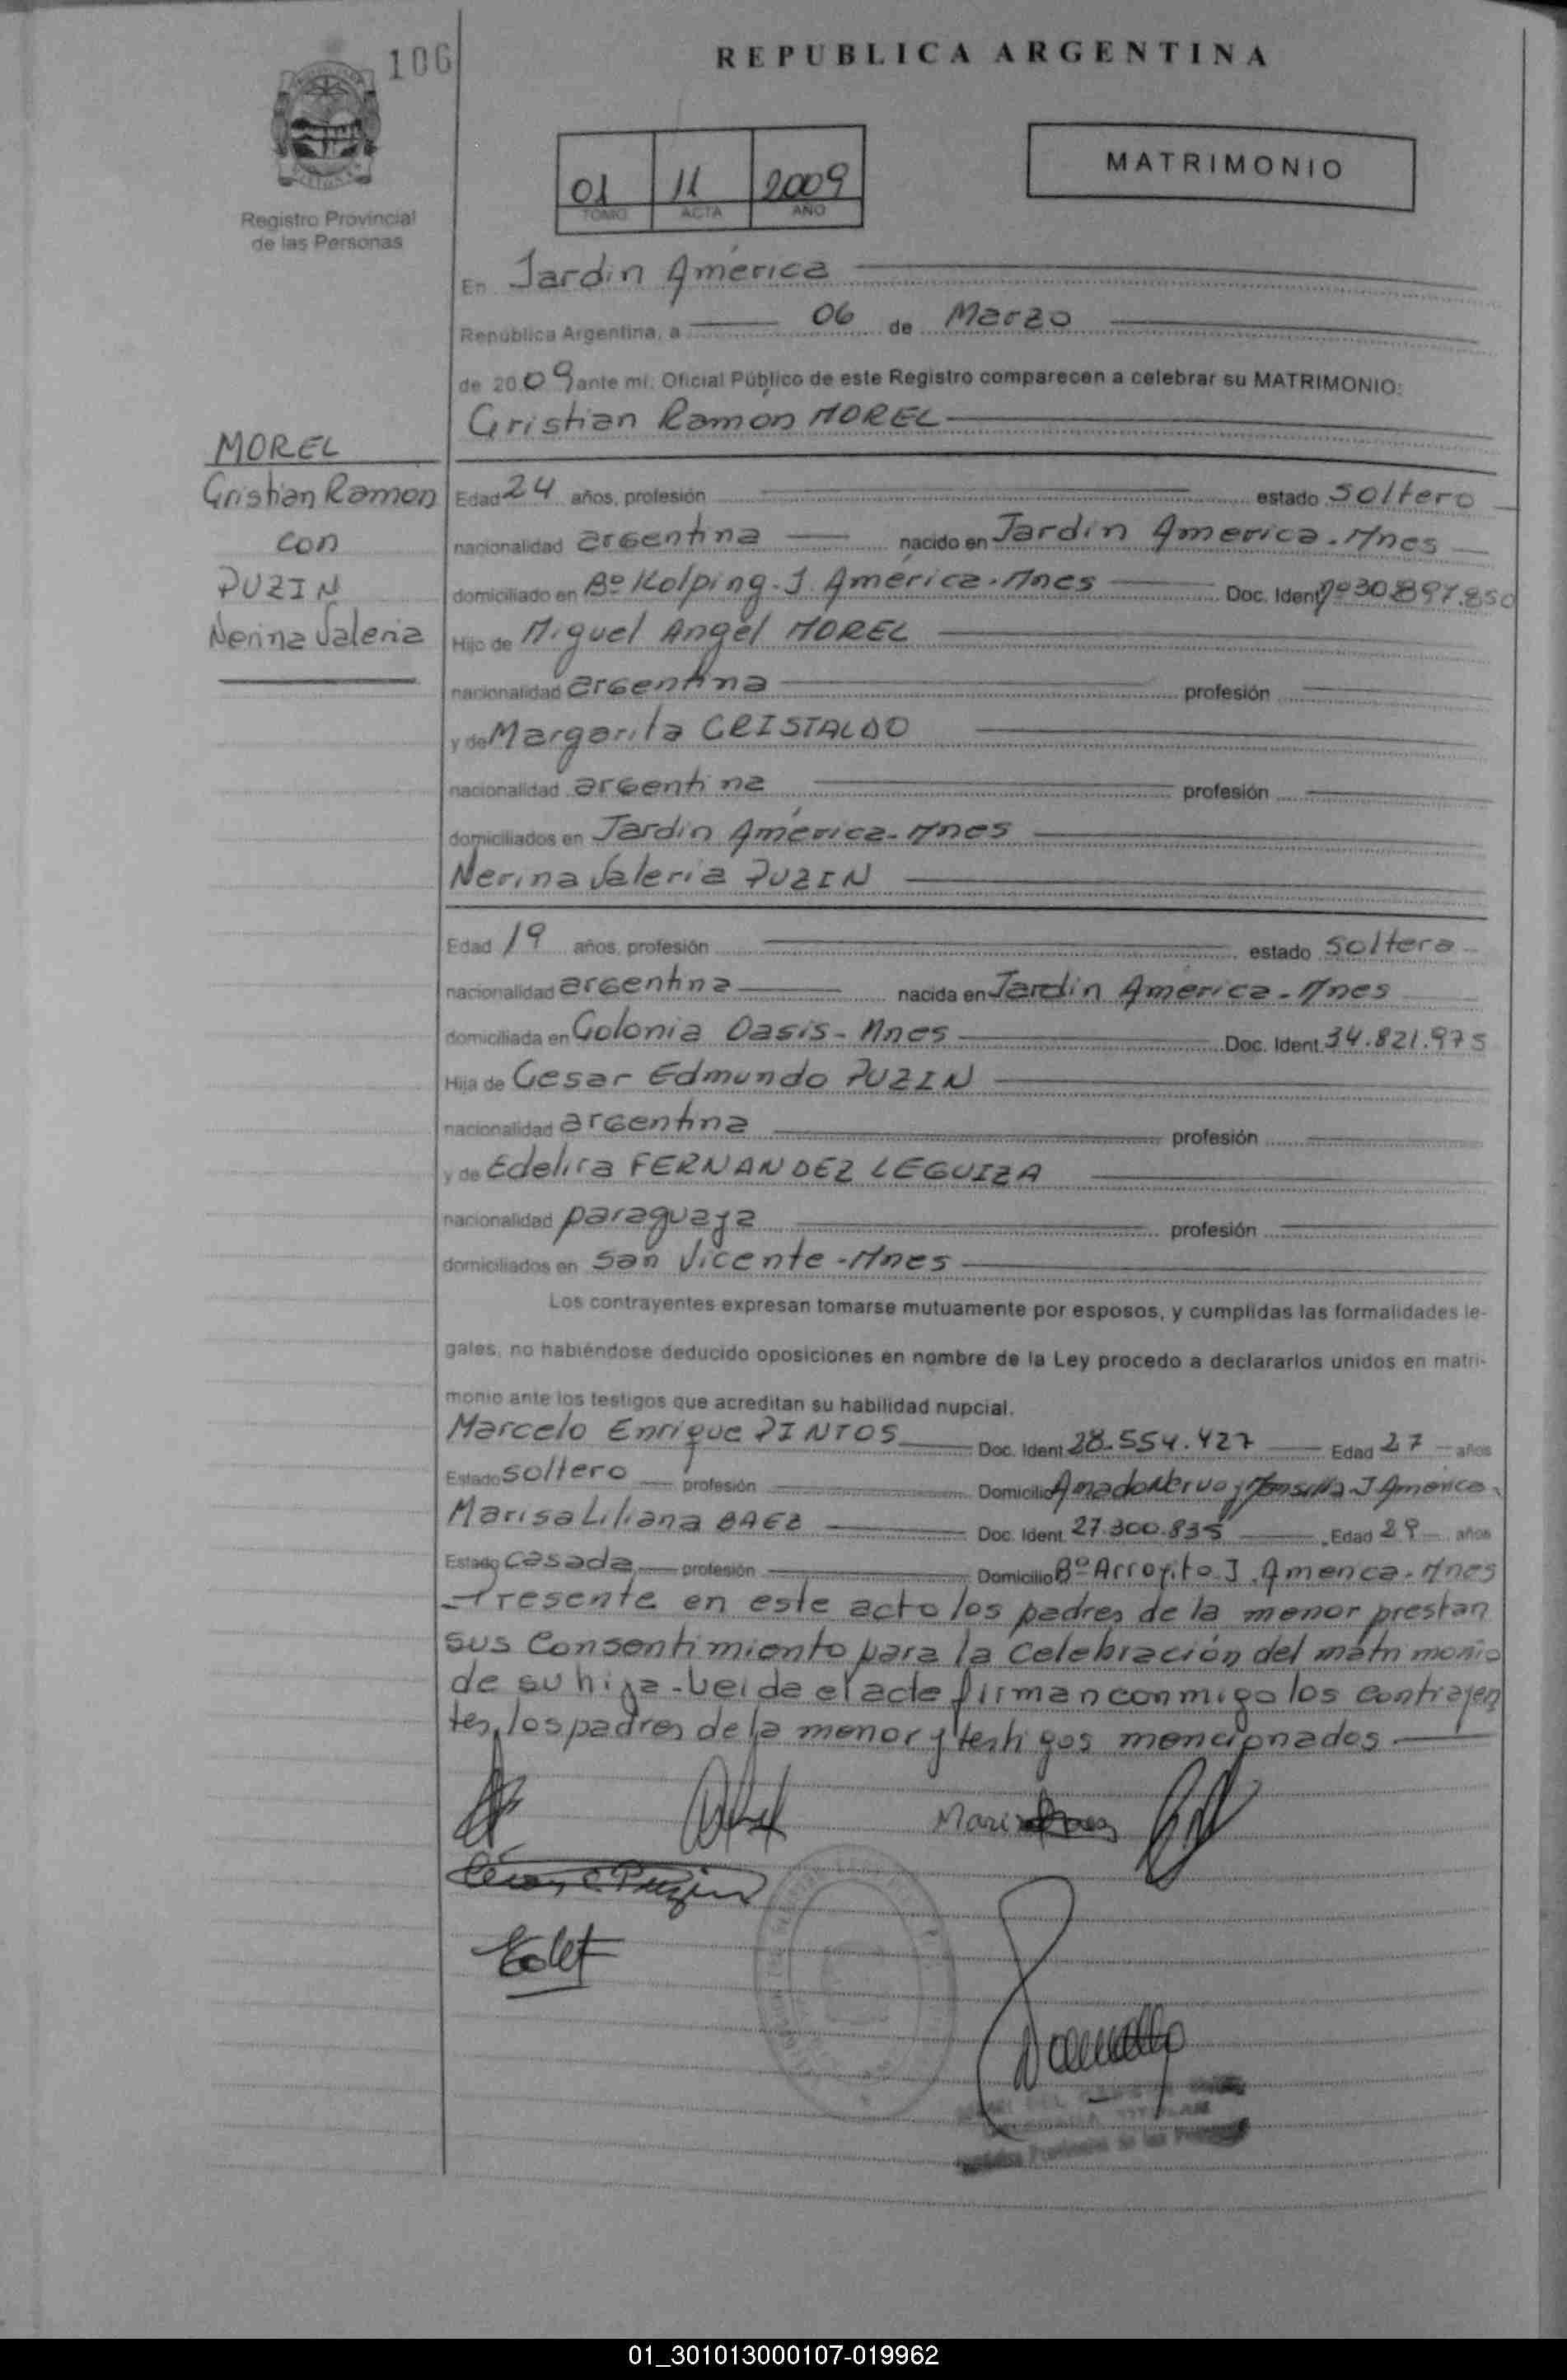 106
REPUBLICA ARGENTINA
01 11 2009
TOMO ACTA AÑO
MATRIMONIO
Registro Provincial
de las Personas
En Jardín América
República Argentina, a 06 de Marzo
de 2009 ante mí, Oficial Público de este Registro comparecen a celebrar su MATRIMONIO:
Cristian Ramón MOREL
MOREL
Cristian Ramon
con
PUZIN
Nerina Valeria
Edad 24 años, profesión estado soltero
nacionalidad argentina nacido en Jardín America-Mnes
domiciliado en Bº Kolping-J. América-Mnes Doc. Ident. Nº 30.897.850
Hijo de Miguel Angel MOREL
nacionalidad argentina profesión
y de Margarita CRISTALDO
nacionalidad argentina profesión
domiciliados en Jardín América-Mnes
Nerina Valeria PUZIN
Edad 19 años, profesión estado soltera
nacionalidad argentina nacida en Jardín América-Mnes
domiciliada en Colonia Oasis-Mnes Doc. Ident. 34.821.975
Hija de Cesar Edmundo PUZIN
nacionalidad argentina profesión
y de Edelira FERNANDEZ LEGUIZA
nacionalidad paraguaya profesión
domiciliados en San Vicente-Mnes
Los contrayentes expresan tomarse mutuamente por esposos, y cumplidas las formalidades le-
gales, no habiéndose deducido oposiciones en nombre de la Ley procedo a declararlos unidos en matri-
monio ante los testigos que acreditan su habilidad nupcial.
Marcelo Enrique PINTOS Doc. Ident. 28.554.427 Edad 27 años
Estado soltero profesión Domicilio Amado Nervo y Mansilla J América
Marisa Liliana BAEZ Doc. Ident. 27.300.835 Edad 29 años
Estado casada profesión Domicilio Bº Arroyito J. America-Mnes
Presente en este acto los padres de la menor prestan
sus consentimiento para la celebración del matrimonio
de su hija-Leida el acta firman conmigo los contrayen
tes, los padres de la menor y testigos mencionados
01_301013000107-019962